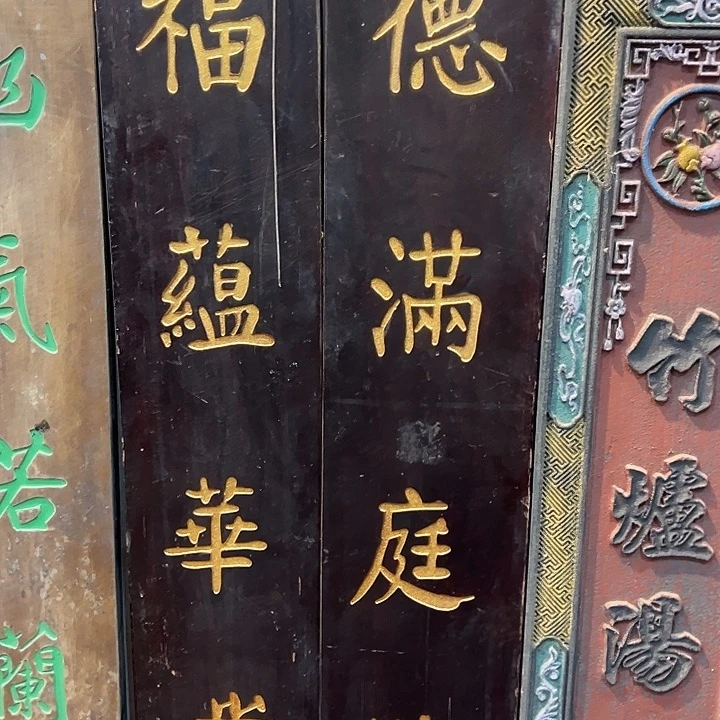 竹爐湯
德滿庭
福蘊華
氣若蘭